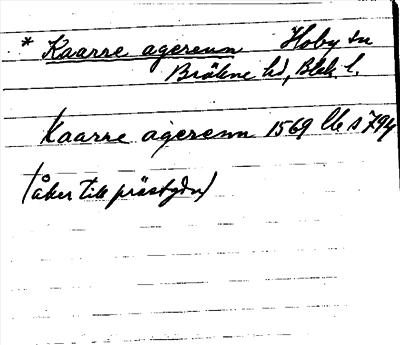 * Kaarre agerenn Hoby sn
Bräkne hd, Blek l.
Kaarre agerenn 1569 Lb s 794
(åker till prästgdn)